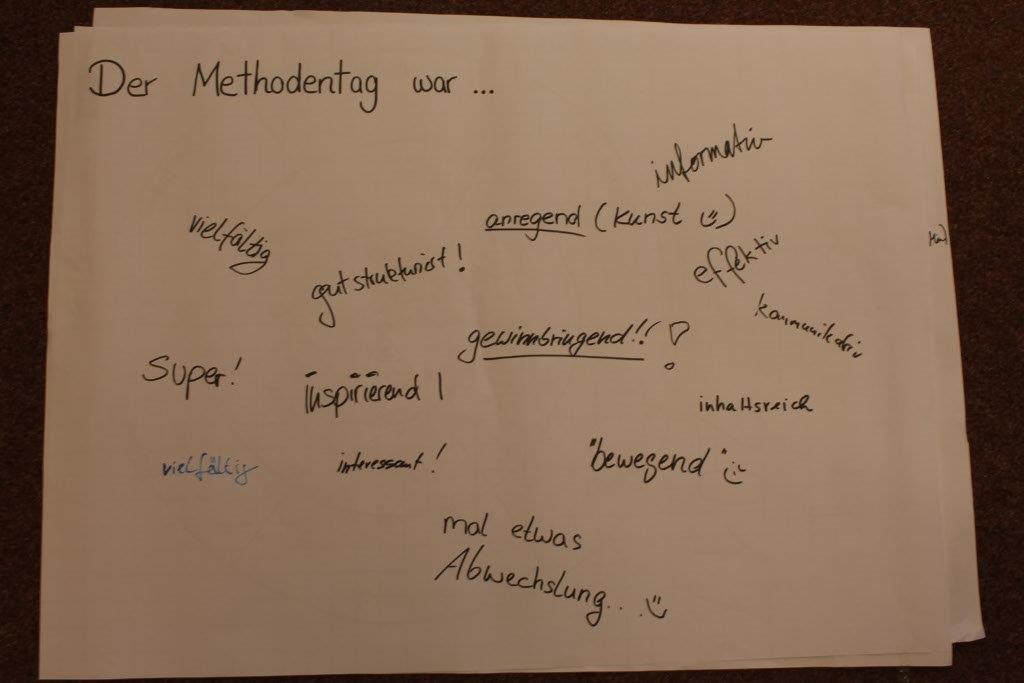 Der Methodentag war ...
informativ
anregend (Kunst ü)
vielfältig
effektiv
gut strukturiert!
kommunikativ
gewinnbringend!!!
Super!
inspirierend!
inhaltsreich
vielfältig
interessant!
"bewegend"
mal etwas
Abwechslung...